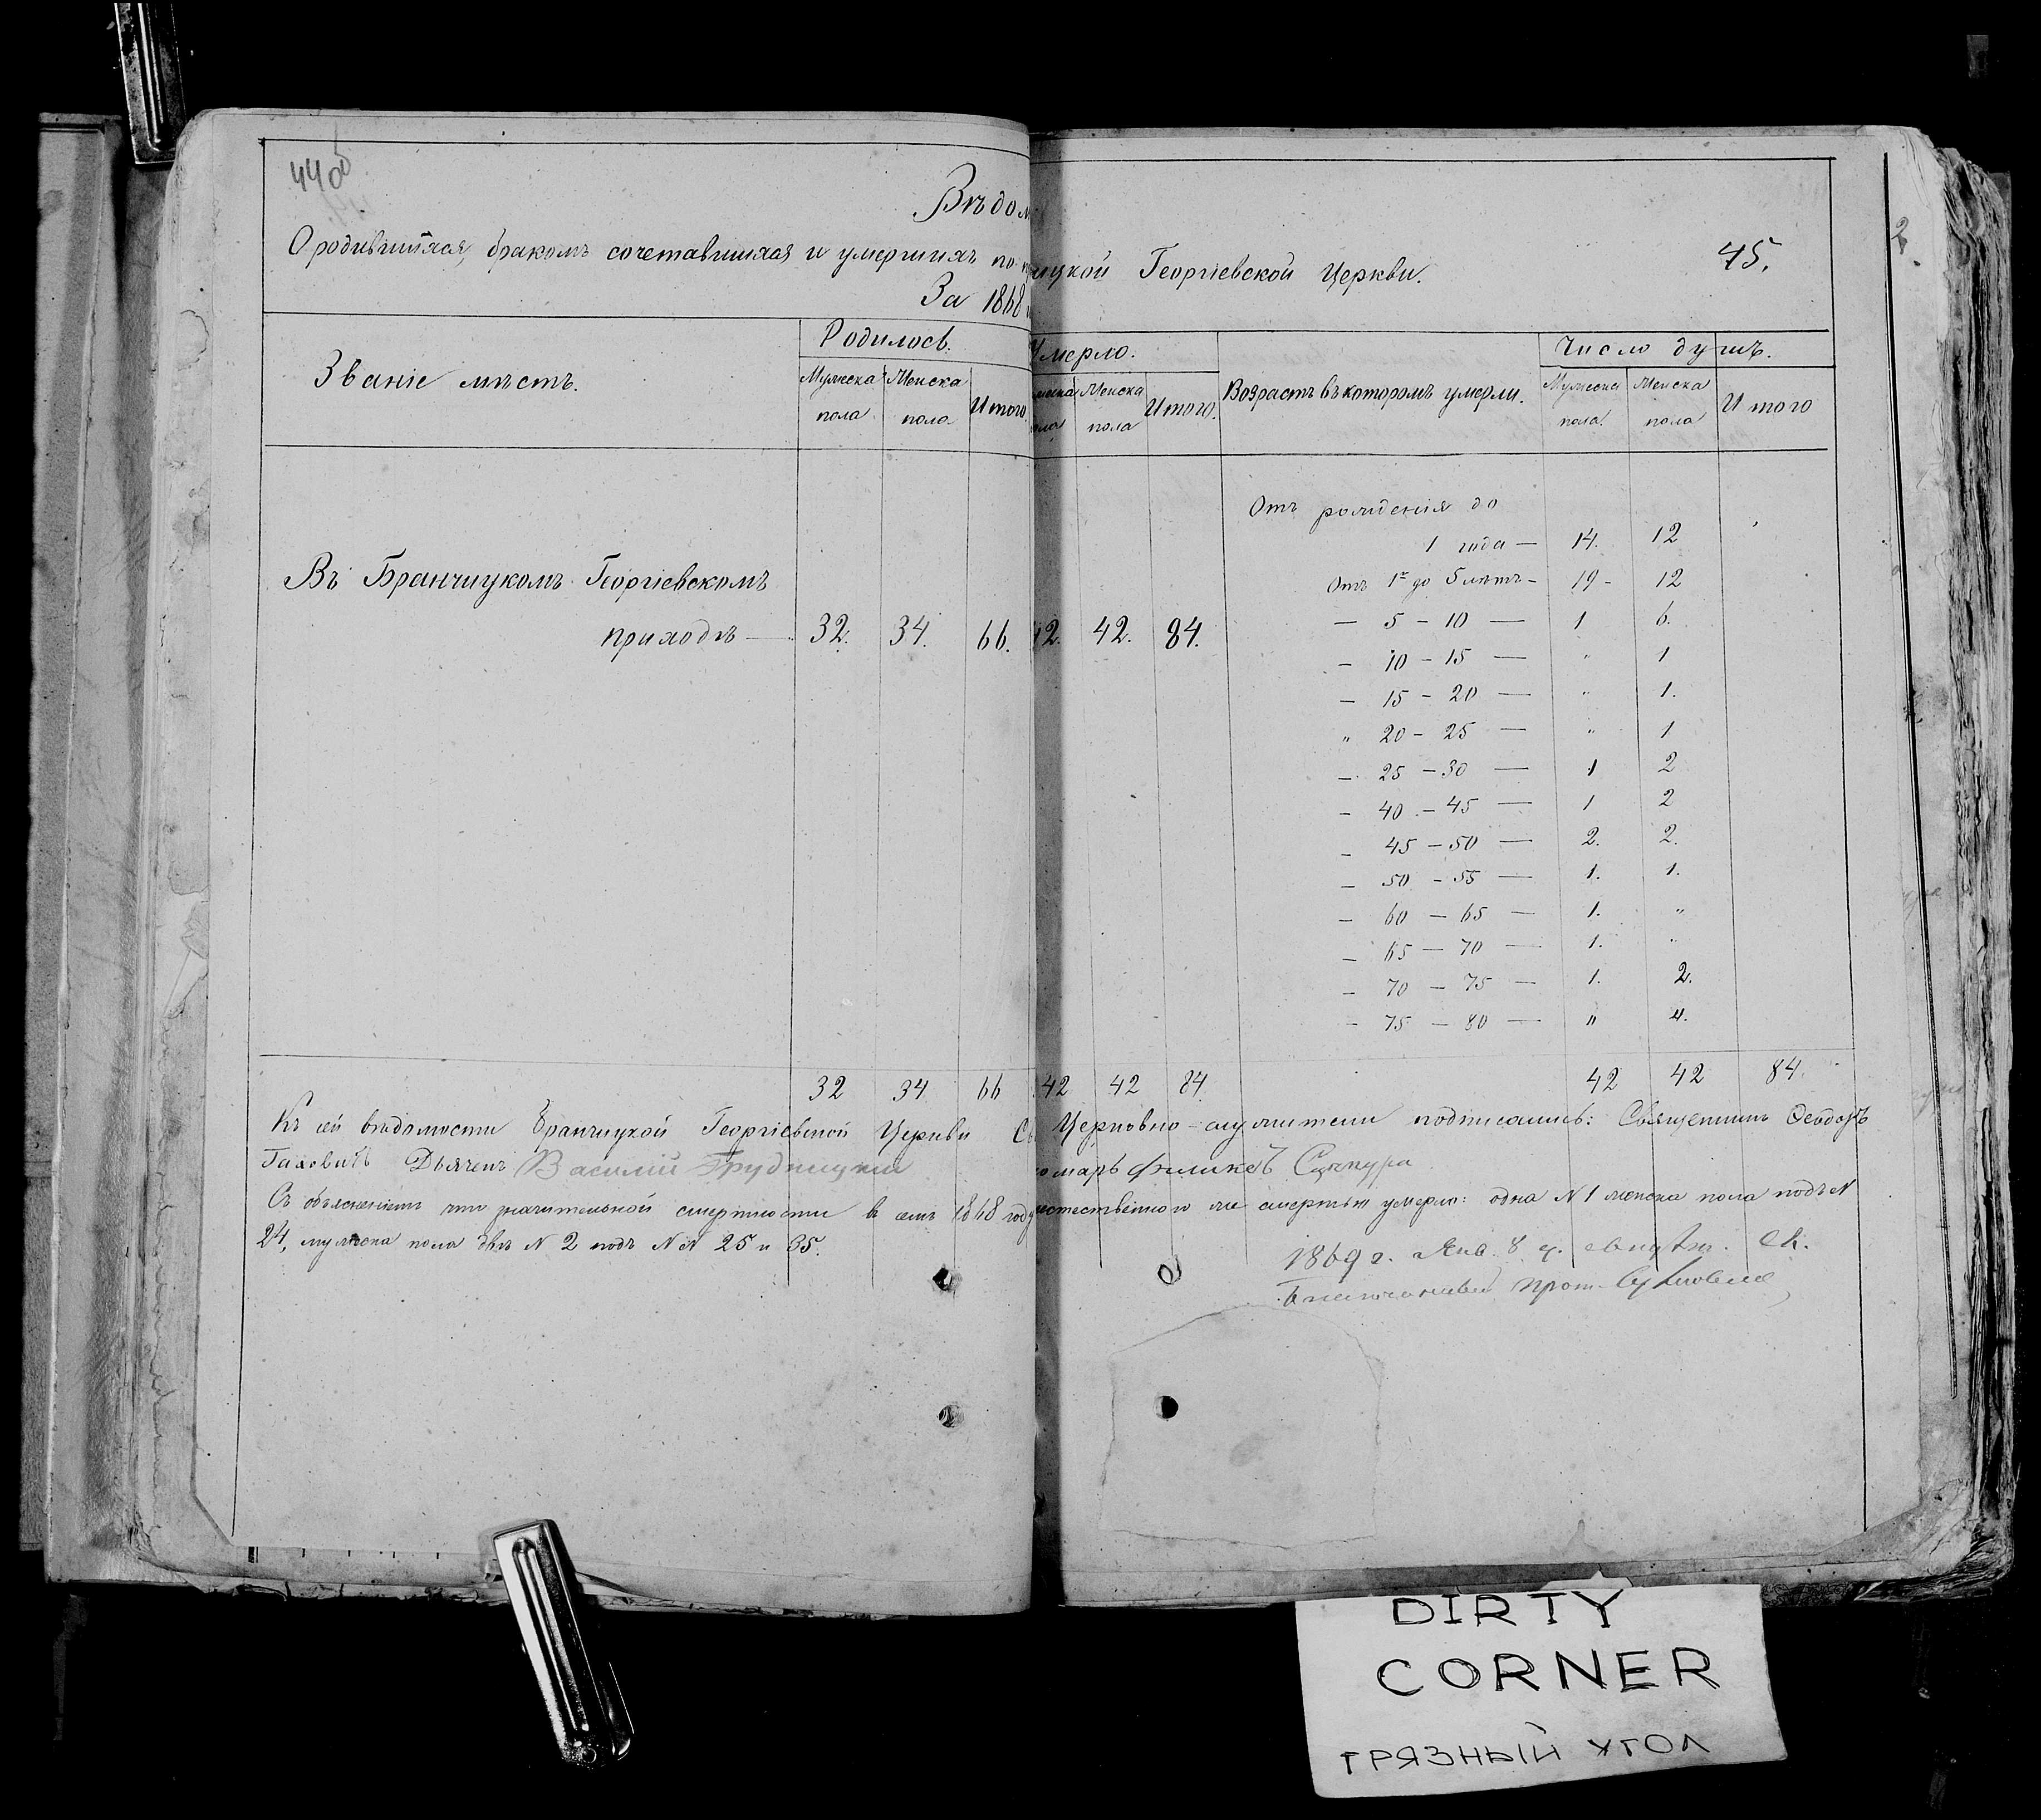 44об
Вѣдом
О родившихся, бракомъ сочетавшихся и умершихъ по
ицкой Георгіевской Церкви.
45.
2.
За 1868
Званіе мѣстъ.
Родилось.
Мужеска пола
Женска пола
Итого
Умерло.
Женска пола
Итого.
Возрастъ въ которомъ умерли.
Число душъ.
Мужеска пола.
Женска пола
Итого
Отъ рожденія до
1 года — 14. 12
Въ Бранчицкомъ Георгіевскомъ
приходѣ — 32. 34. 66. 42. 42. 84.
Отъ 1го до 5 лѣтъ - 19 - 12
— 5 - 10 — 1 6.
— 10 - 15 — " 1
— 15 - 20 — " 1.
" 20 - 25 — " 1
— 25 - 30 — 1 2
— 40 - 45 — 1 2
— 45 - 50 — 2. 2.
— 50 - 55 — 1. 1.
— 60 - 65 — 1. "
— 65 - 70 — 1. "
— 70 - 75 — 1. 2.
— 75 - 80 — " 4.
32 34 66 42 42 84 42 42 84.
Къ сей вѣдомости Бранчицкой Георгіевской Церкви Церковно-служители подписались: Священникъ Ѳеодоръ
Дьячекъ Василій Грудницкій омарь
Съ объясненіемъ что значительной смертности въ семъ 1868 году естественною же смертью умерло: одна N 1 женска пола подъ N
24, мужеска пола двѣ N 2 подъ NN 25 и 35.
1869 г. Янв. 8 д.
Благочинный прот.
DIRTY
CORNER
ГРЯЗНЫЙ УГОЛ